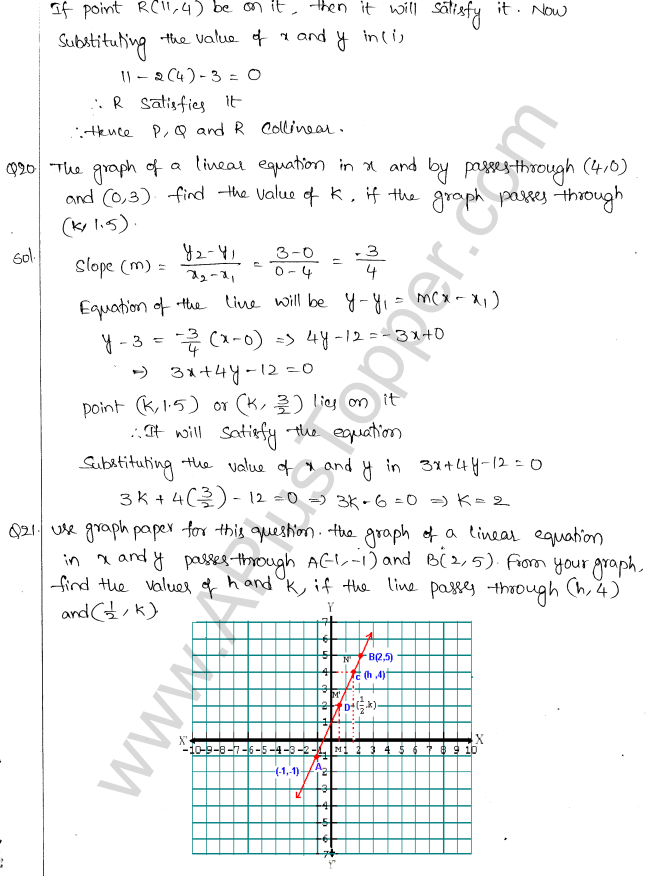 If point R(11,4) be on it, then it will satisfy it. Now
Substituting the value of x and y in (i)
11 - 2(4) - 3 = 0
∴ R Satisfies it
∴ Hence P, Q and R Collinear.
Q20. The graph of a linear equation in x and by passes through (4,0)
and (0,3). find the value of k, if the graph passes through
(k, 1.5).
Sol. Slope (m) = y2-y1/x2-x1 = 3-0/0-4 = -3/4
Equation of the line will be y-y1 = m(x-x1)
y-3 = -3/4 (x-0) => 4y-12 = -3x+0
=> 3x+4y-12=0
point (k,1.5) or (k, 3/2) lies on it
∴ It will satisfy the equation
Substituting the value of x and y in 3x+4y-12=0
3k + 4(3/2) - 12 = 0 => 3k-6=0 => k=2
Q21. Use graph paper for this question. the graph of a linear equation
in x and y passes through A(-1,-1) and B(2,5). From your graph,
find the values of h and k, if the line passes through (h,4)
and (1/2, k)
Y
7
6
5 N' B(2,5)
4 C (h ,4)
3
2 M' D (1/2,k)
1
X' -10-9-8-7-6-5-4-3-2-1 M 1 2 3 4 5 6 7 8 9 10 X
-1 A
(-1,-1) -2
-3
-4
-5
-6
-7
Y'
www.APlusTopper.com